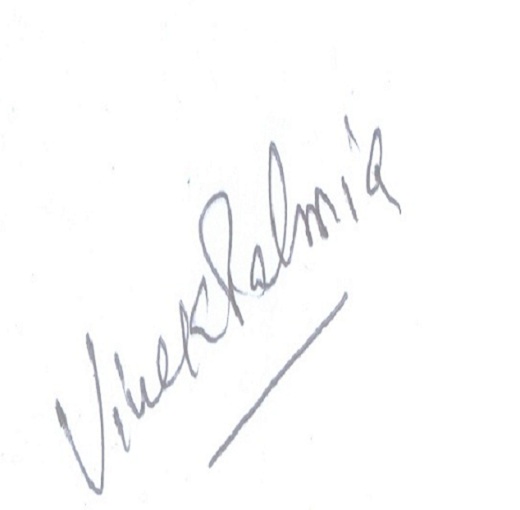 Vivek Dalmia